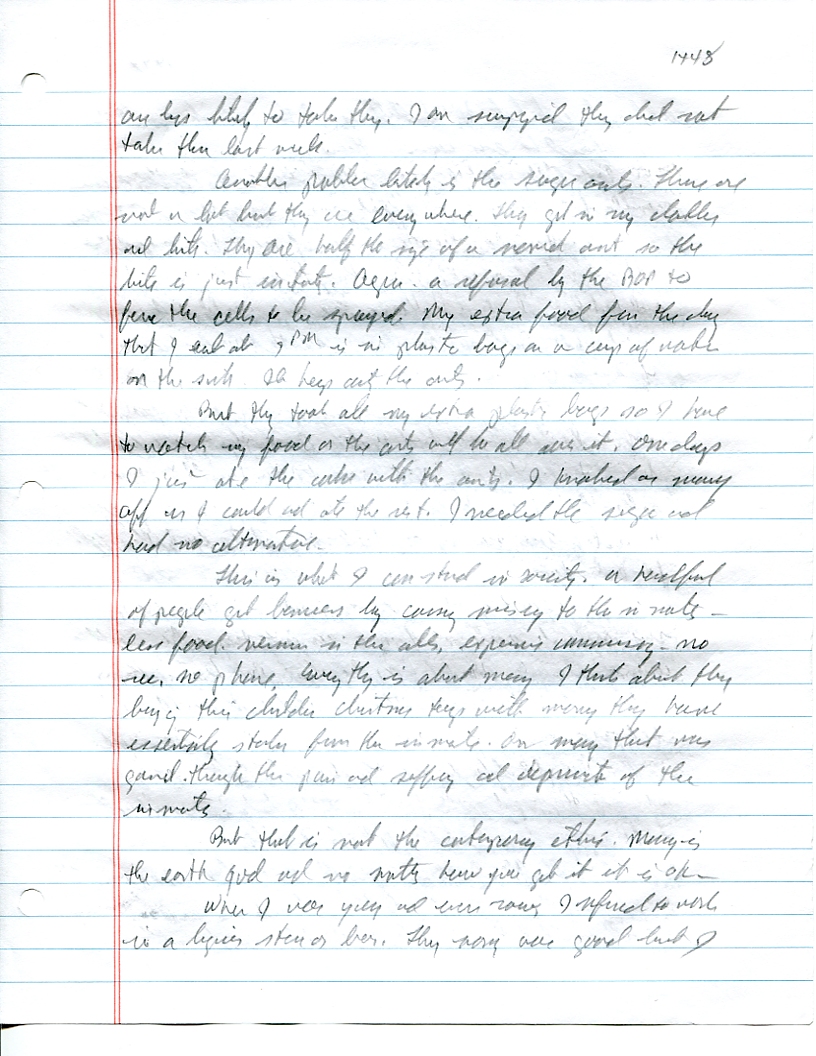 1448
are less likely to take they. I am surprised they did not
take them last week.
Another problem lately is the sugar ants. There are
not a lot but they are everywhere. They get in my clothes
and bite. They are half the size of a normal ant so the
bite is just irritate. Again a refusal by the BOP to
have the cells to be sprayed. My extra food from the day
that I eat at 9 PM is in plastic bags on a cup of water
on the It keeps out the ants.
But they took all my extra plastic bags so I have
to watch my food or the ants will be all over it. One days
I just ate the cake with the ants. I knocked as many
off as I could and ate the rest. I needed the sugar and
had no alternative.
This is what I can't stand in society. a handful
of people get bonuses by causing misery to the inmates -
less food. vermin in the cells, expensive commissary. no
rec, no phone, Everything is about money I think about they
buying their children christmas toys with money they have
essentially stolen from the inmate. Or money that was
gained through the pain and suffering and deprivate of the
inmates.
But that is not the contemporary ethic. Money is
the earth god and no matter how you get it it is ok -
When I was young and even I refused to work
in a liquor store or bar. They money was good but I